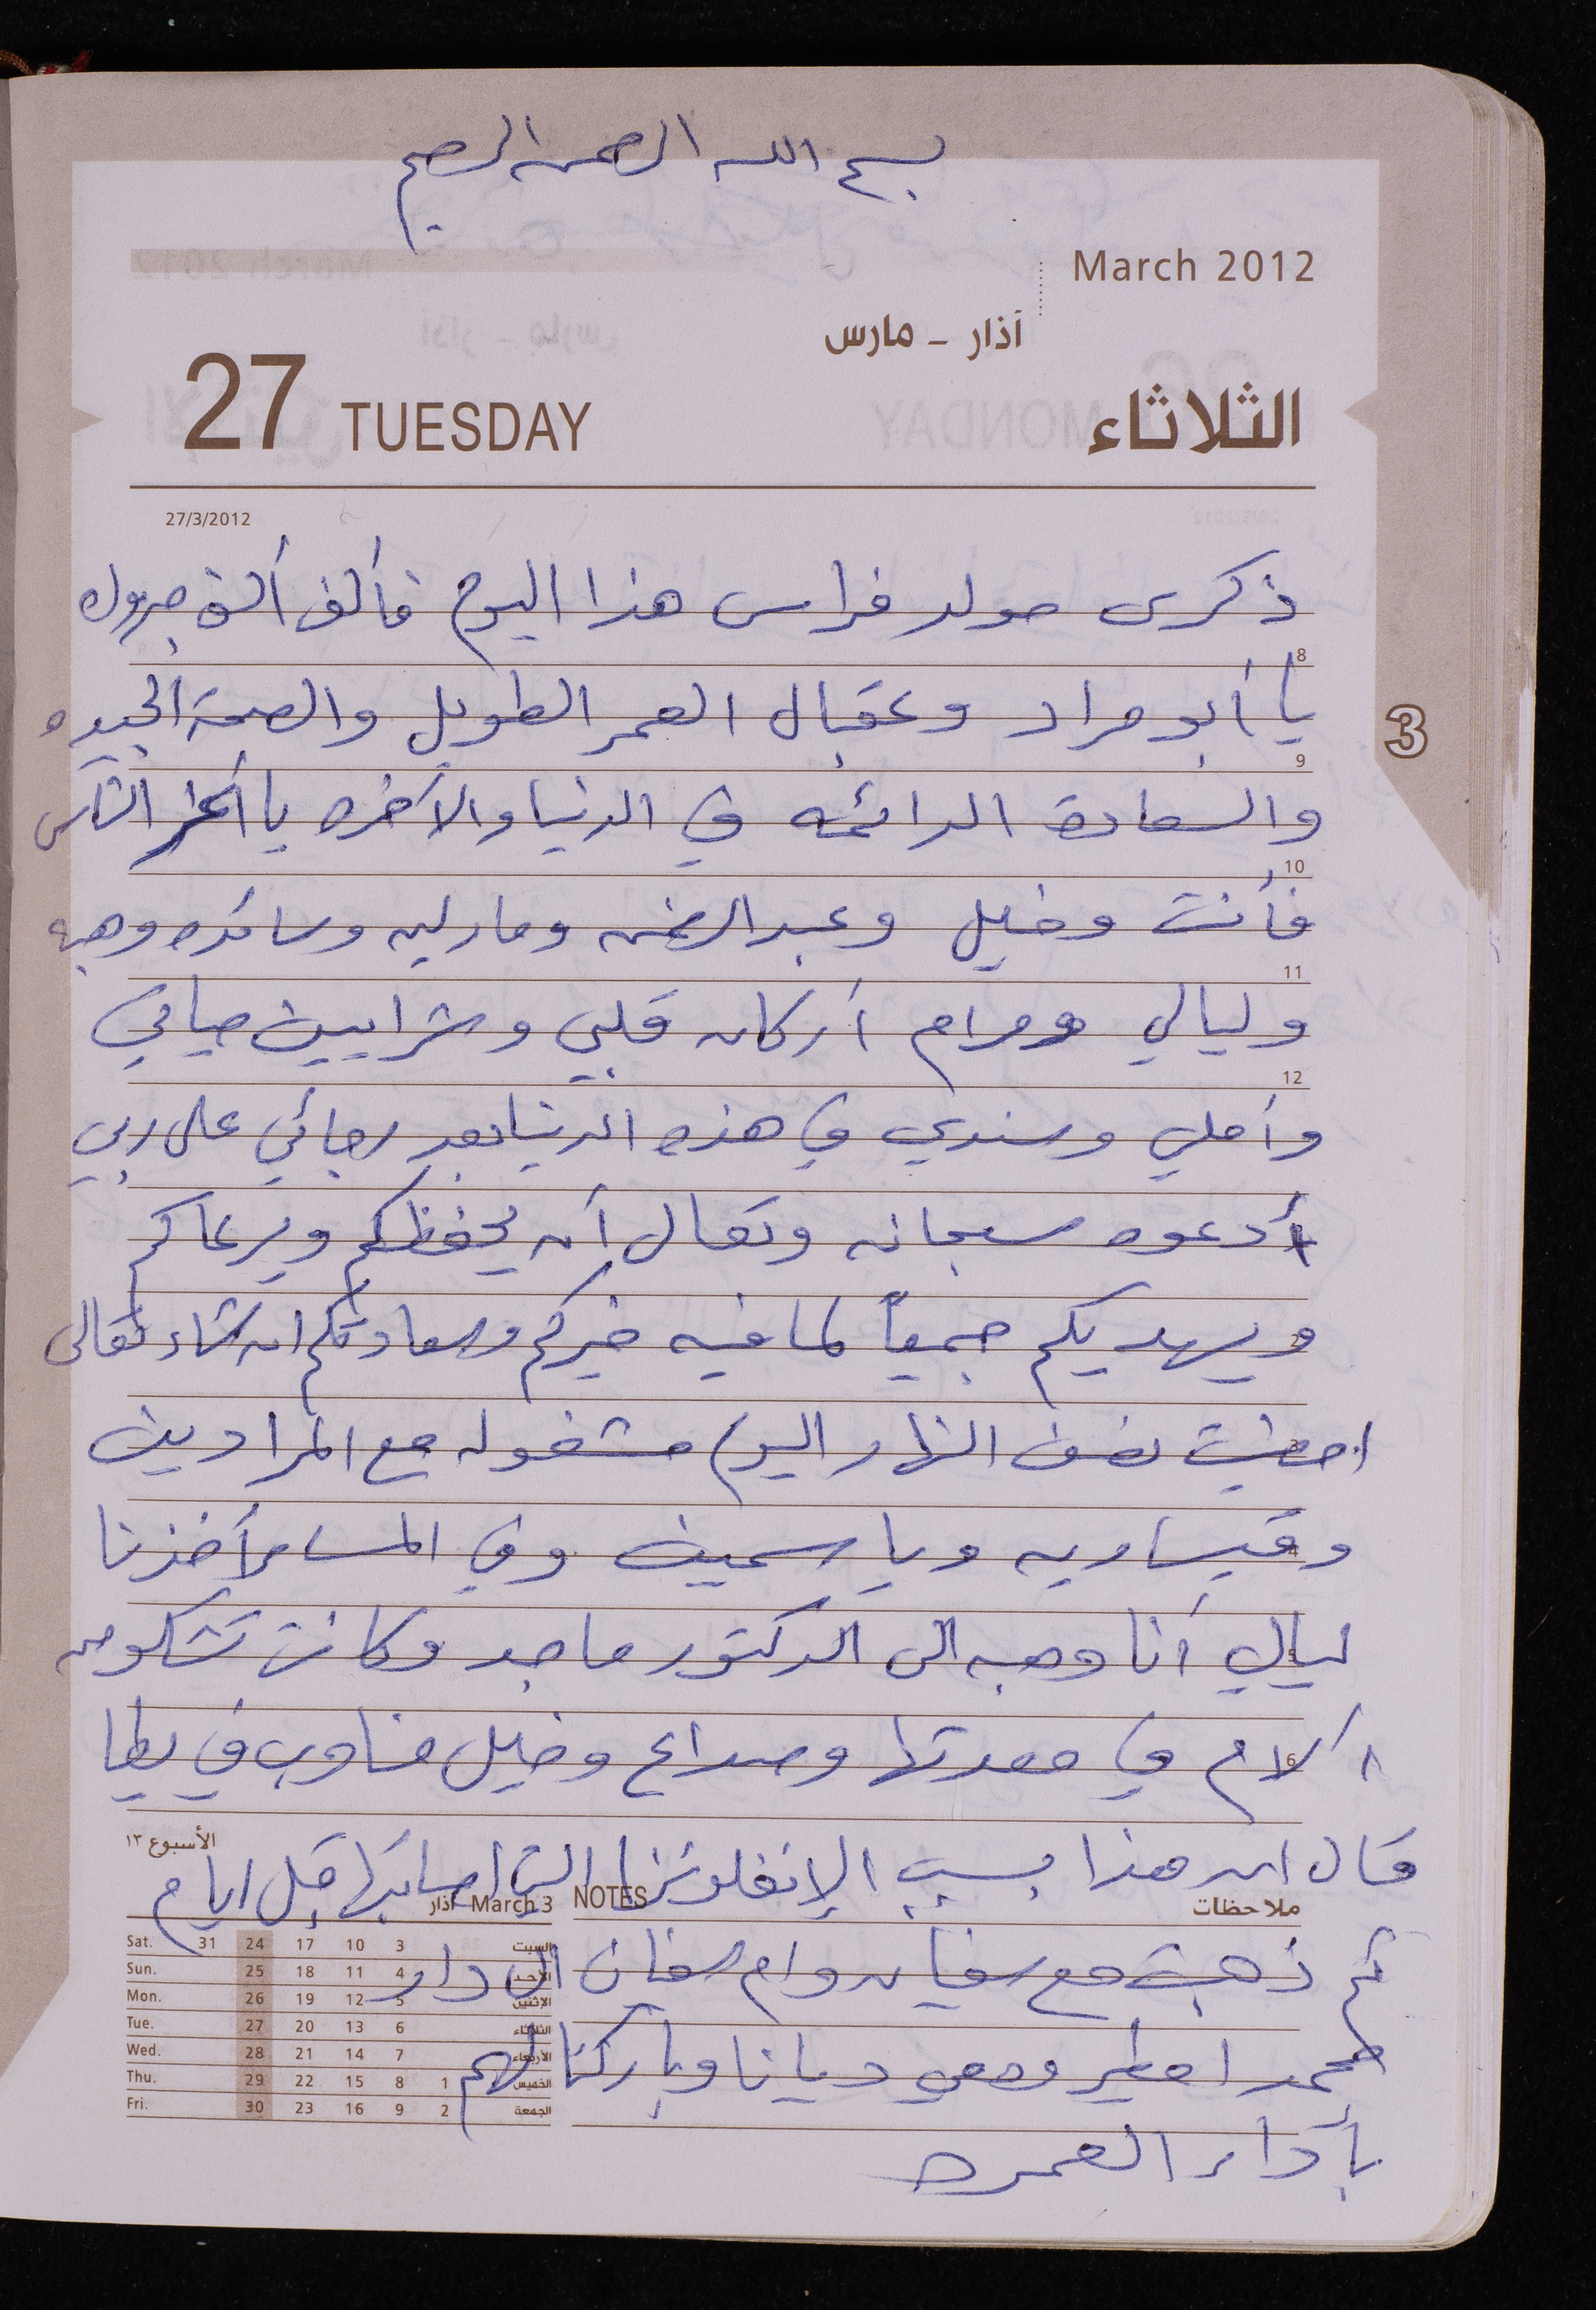 بسم الله الرحمن الرحيم
March 2012
آذار - مارس
27 TUESDAY الثلاثاء
27/3/2012
ذكرى مولد فراس هذا اليوم فألف ألف مبروك
8
يا أبو مراد وعقبال العمر الطويل والصحة الجيده
9
3
والسعادة الدائمه في الدنيا والآخره يا أعز الناس
10
فأنت وخليل وعبد الرحمن ومادلين وسائده وهبه
11
وليالي ومرام أركان قلبي وشرايين حياتي
12
وأملي وسندي في هذه الدنيا بعد رجائي على ربي
1
أدعوه سبحانه وتعالى أن يحفظكم ويرعاكم
2
ويهديكم جميعاً لما فيه خيركم وسعادتكم ان شاء تعالى
3
امضيت نصف النهار اليوم مشغوله مع المرادين
4
وقيساريه وياسمين وفي المساء أخذنا
5
ليالي أنا وهبه الى الدكتور ماجد وكانت تشكو من
6
آلام في معدتها وصداع وخليل مناوب في يطا
الأسبوع ١٣
قال ان هذا بسبب الإنفلونزا التي اصابتها قبل ايام
ملاحظات NOTES
March 3 آذار
ثم ذهبت مع سفيان وام سفيان الى دار
محمد امطير ومعي ديانا وباركنا لهم
بأداء العمره
Sat. 31 24 17 10 3 السبت
Sun. 25 18 11 4 الأحد
Mon. 26 19 12 5 الإثنين
Tue. 27 20 13 6 الثلاثاء
Wed. 28 21 14 7 الأربعاء
Thu. 29 22 15 8 1 الخميس
Fri. 30 23 16 9 2 الجمعة